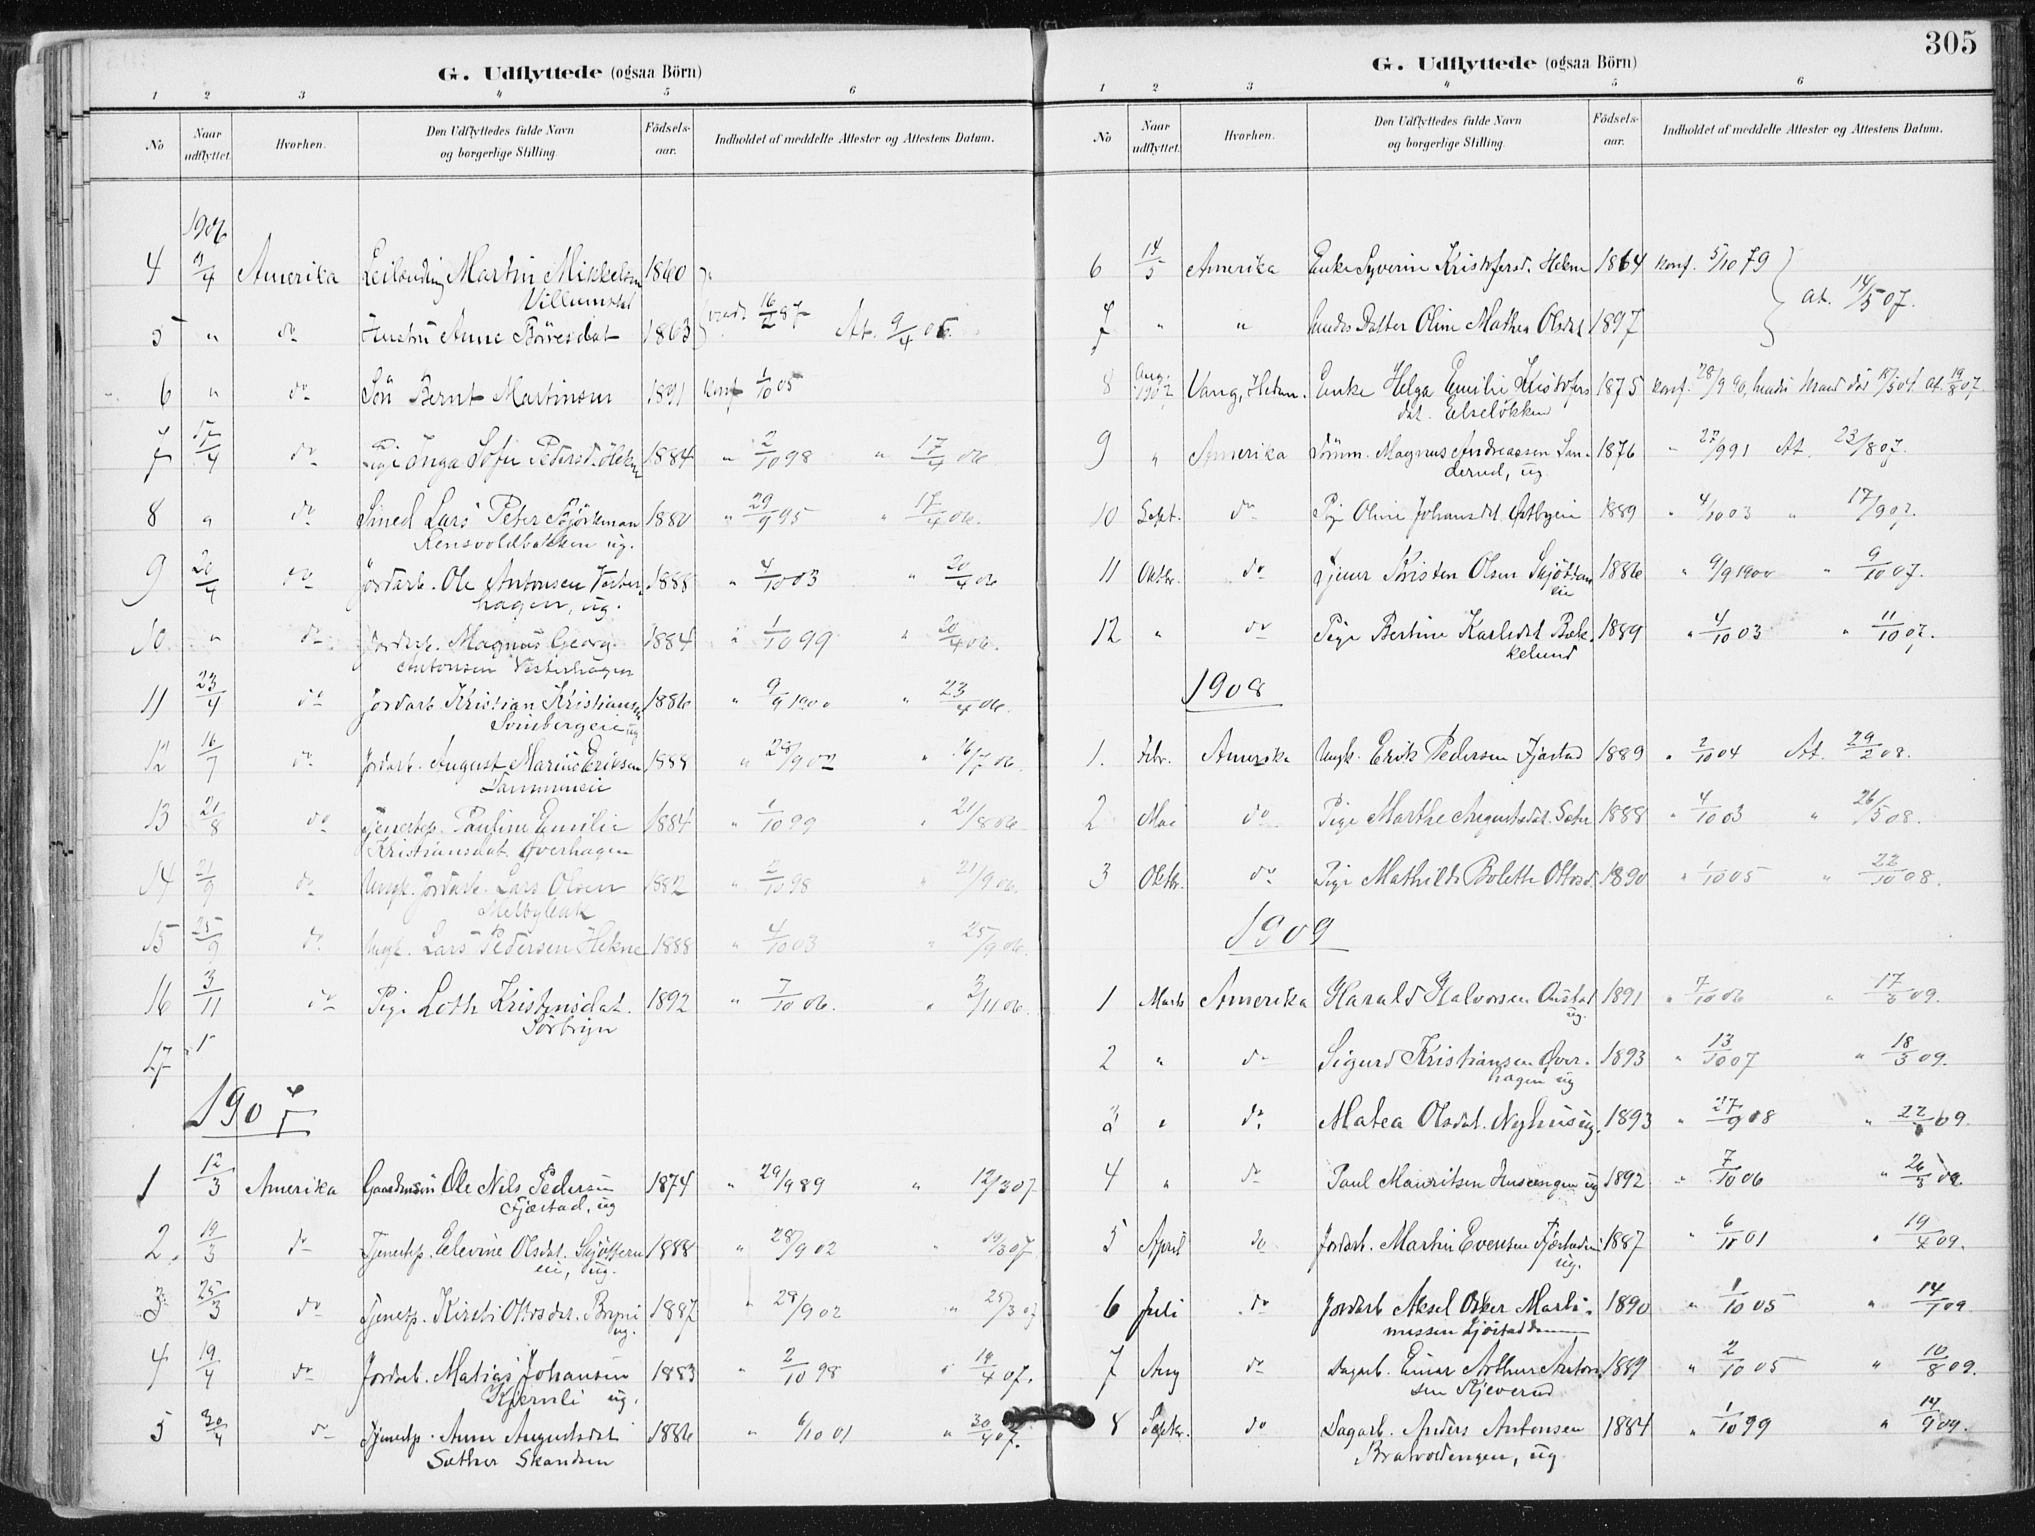 305
G. Udflyttede (ogsaa Börn)
1 2 3 4 5 6
No Naar udflyttet. Hvorhen. Den Udflyttedes fulde Navn og borgerlige Stilling. Födsels-aar. Indholdet af meddelte Attester og Attestens Datum.
1906
4 9/4 Amerika Leilænding Martin Mikkelsen 1860
Villumstad
5 " do Hustru Anne Börresdat 1863 viede 16/2 87 At. 9/4 06.
6 " do Sön Bernt Martinsen 1891 Konf 1/10 05
7 17/4 do Pige Inga Sofie Pedersd. Hekne 1884 " 2/10 98 " 17/4 06
8 " do Smed Lars Peter Björkman 1880 " 29/9 95 " 17/4 06.
Rensvoldbakken ug.
9 20/4 do Jordarb. Ole Antonsen Vester- 1888 " 4/10 03 " 20/4 06
hagen, ug.
10 " do Jordarb. Magnus Georg 1884 " 1/10 99 " 20/4 06.
Antonsen Vesterhagen
11 23/4 do Jordarb Kristian Kristiansen 1886 " 9/9 1900 " 23/4 06.
Svinbergeie ug
12 16/7 do Jordarb. August Marius Eriksen 1888 " 28/9 02 " 16/7 06.
13 21/8 do Tjenestep. Pauline Emilie 1884 " 1/10 99 " 21/8 06
Kristiansdat. Överhagen
14 21/9 do Ungk. Jordarb. Lars Olsen 1882 " 2/10 98 " 21/9 06.
15 25/9 do Ungk. Lars Pedersen Hekne 1888 " 4/10 03 " 25/9 06.
16 3/11 do Pige Loth Kristensdat. 1892 " 7/10 06. " 3/11 06.
Sörbryn
17
1907
1 12/3 Amerika Gaardmsön Ole Nels Pedersen 1874 " 29/9 89 " 12/3 07
Fjæstad, ug
2. 19/3 do Tjenestep. Elevine Olsdat. Skjöttern 1888 " 28/9 02 " 19/3 07
eie, ug.
3 25/3 do Tjenestp. Kirsti Ottosdat. Bryni 1887 " 28/9 02 " 25/3 07
ug.
4 19/4 do Jordarb. Matias Johansen 1883 " 2/10 98 " 19/4 07.
Kjernli ug.
5 30/4 do Tjenestp. Anne Augustsdat 1886 " 6/10 01 " 30/4 07.
Sæther Skandsen
G. Udflyttede (ogsaa Börn)
1 2 3 4 5 6
No Naar udflyttet. Hvorhen. Den Udflyttedes fulde Navn og borgerlige Stilling. Födsels-aar. Indholdet af meddelte Attester og Attestens Datum.
6 14/5 Amerika Enke Syverine Kristofersd. Hekne 1864 Konf. 5/10 79
At. 14/5 07.
7 " " hendes Datter Oline Mathea Olsdat 1897
8 Aug. 1907 Vang, Hedem. Enke Helga Emilie Kristofers 1875 Konf. 28/9 90, hendes Mand död 15/3 04. At. 19/8 07.
dat. Elselökken
9 " Amerika Tömm. Magnus Andreassen San- 1876 " 27/9 91 At. 23/8 07.
derud, ug.
10 Sept. do Pige Oline Johansdat Östbyeie 1889 " 4/10 03 " 17/9 07.
11 Oktbr. do Tjener Kristen Olsen Skjöttern 1886 " 9/9 1900 " 9/10 07.
eie
12 " do Pige Bertine Karlsdat Bæk- 1889 " 4/10 03 " 11/10 07.
kelund
1908
1. Febr. Amerika Ungk. Erik Pedersen Fjæstad 1889 " 2/10 04 At. 29/2 08.
2 Mai do Pige Marthe Augustsdat. Sæter 1888 " 4/10 03 " 26/5 08.
3 Oktbr. do Pige Mathilde Bolette Ottosd. 1890 " 1/10 05 " 22/10 08.
1909
1 Marts Amerika Harald Halvorsen Austad 1891 " 7/10 06 " 17/3 09.
ug.
2 " do Sigurd Kristiansen Över- 1893 " 13/10 07 " 18/3 09.
hagen ug
3 " do Matea Olsdat. Nyhus ug. 1893 " 27/9 08 " 22/3 09.
4 " do Paul Mauritsen Husengen ug 1892 " 7/10 06 " 26/3 09.
5 April do Jordarb. Martin Evensen Fjæstadeie 1887 " 6/10 01 " 19/4 09.
ug.
6 Juli do Jordarb Aksel Osker Marti- 1890 " 1/10 05 " 14/7 09
nussen
7 Aug do Dagarb. Einar Arthur Anton- 1889 " 2/10 05 " 10/8 09.
sen Kjeverud
8 Septbr. do Dagarb. Anders Antonsen 1884 " 1/10 99 " 14/9 09.
Bratvoldengen, ug.